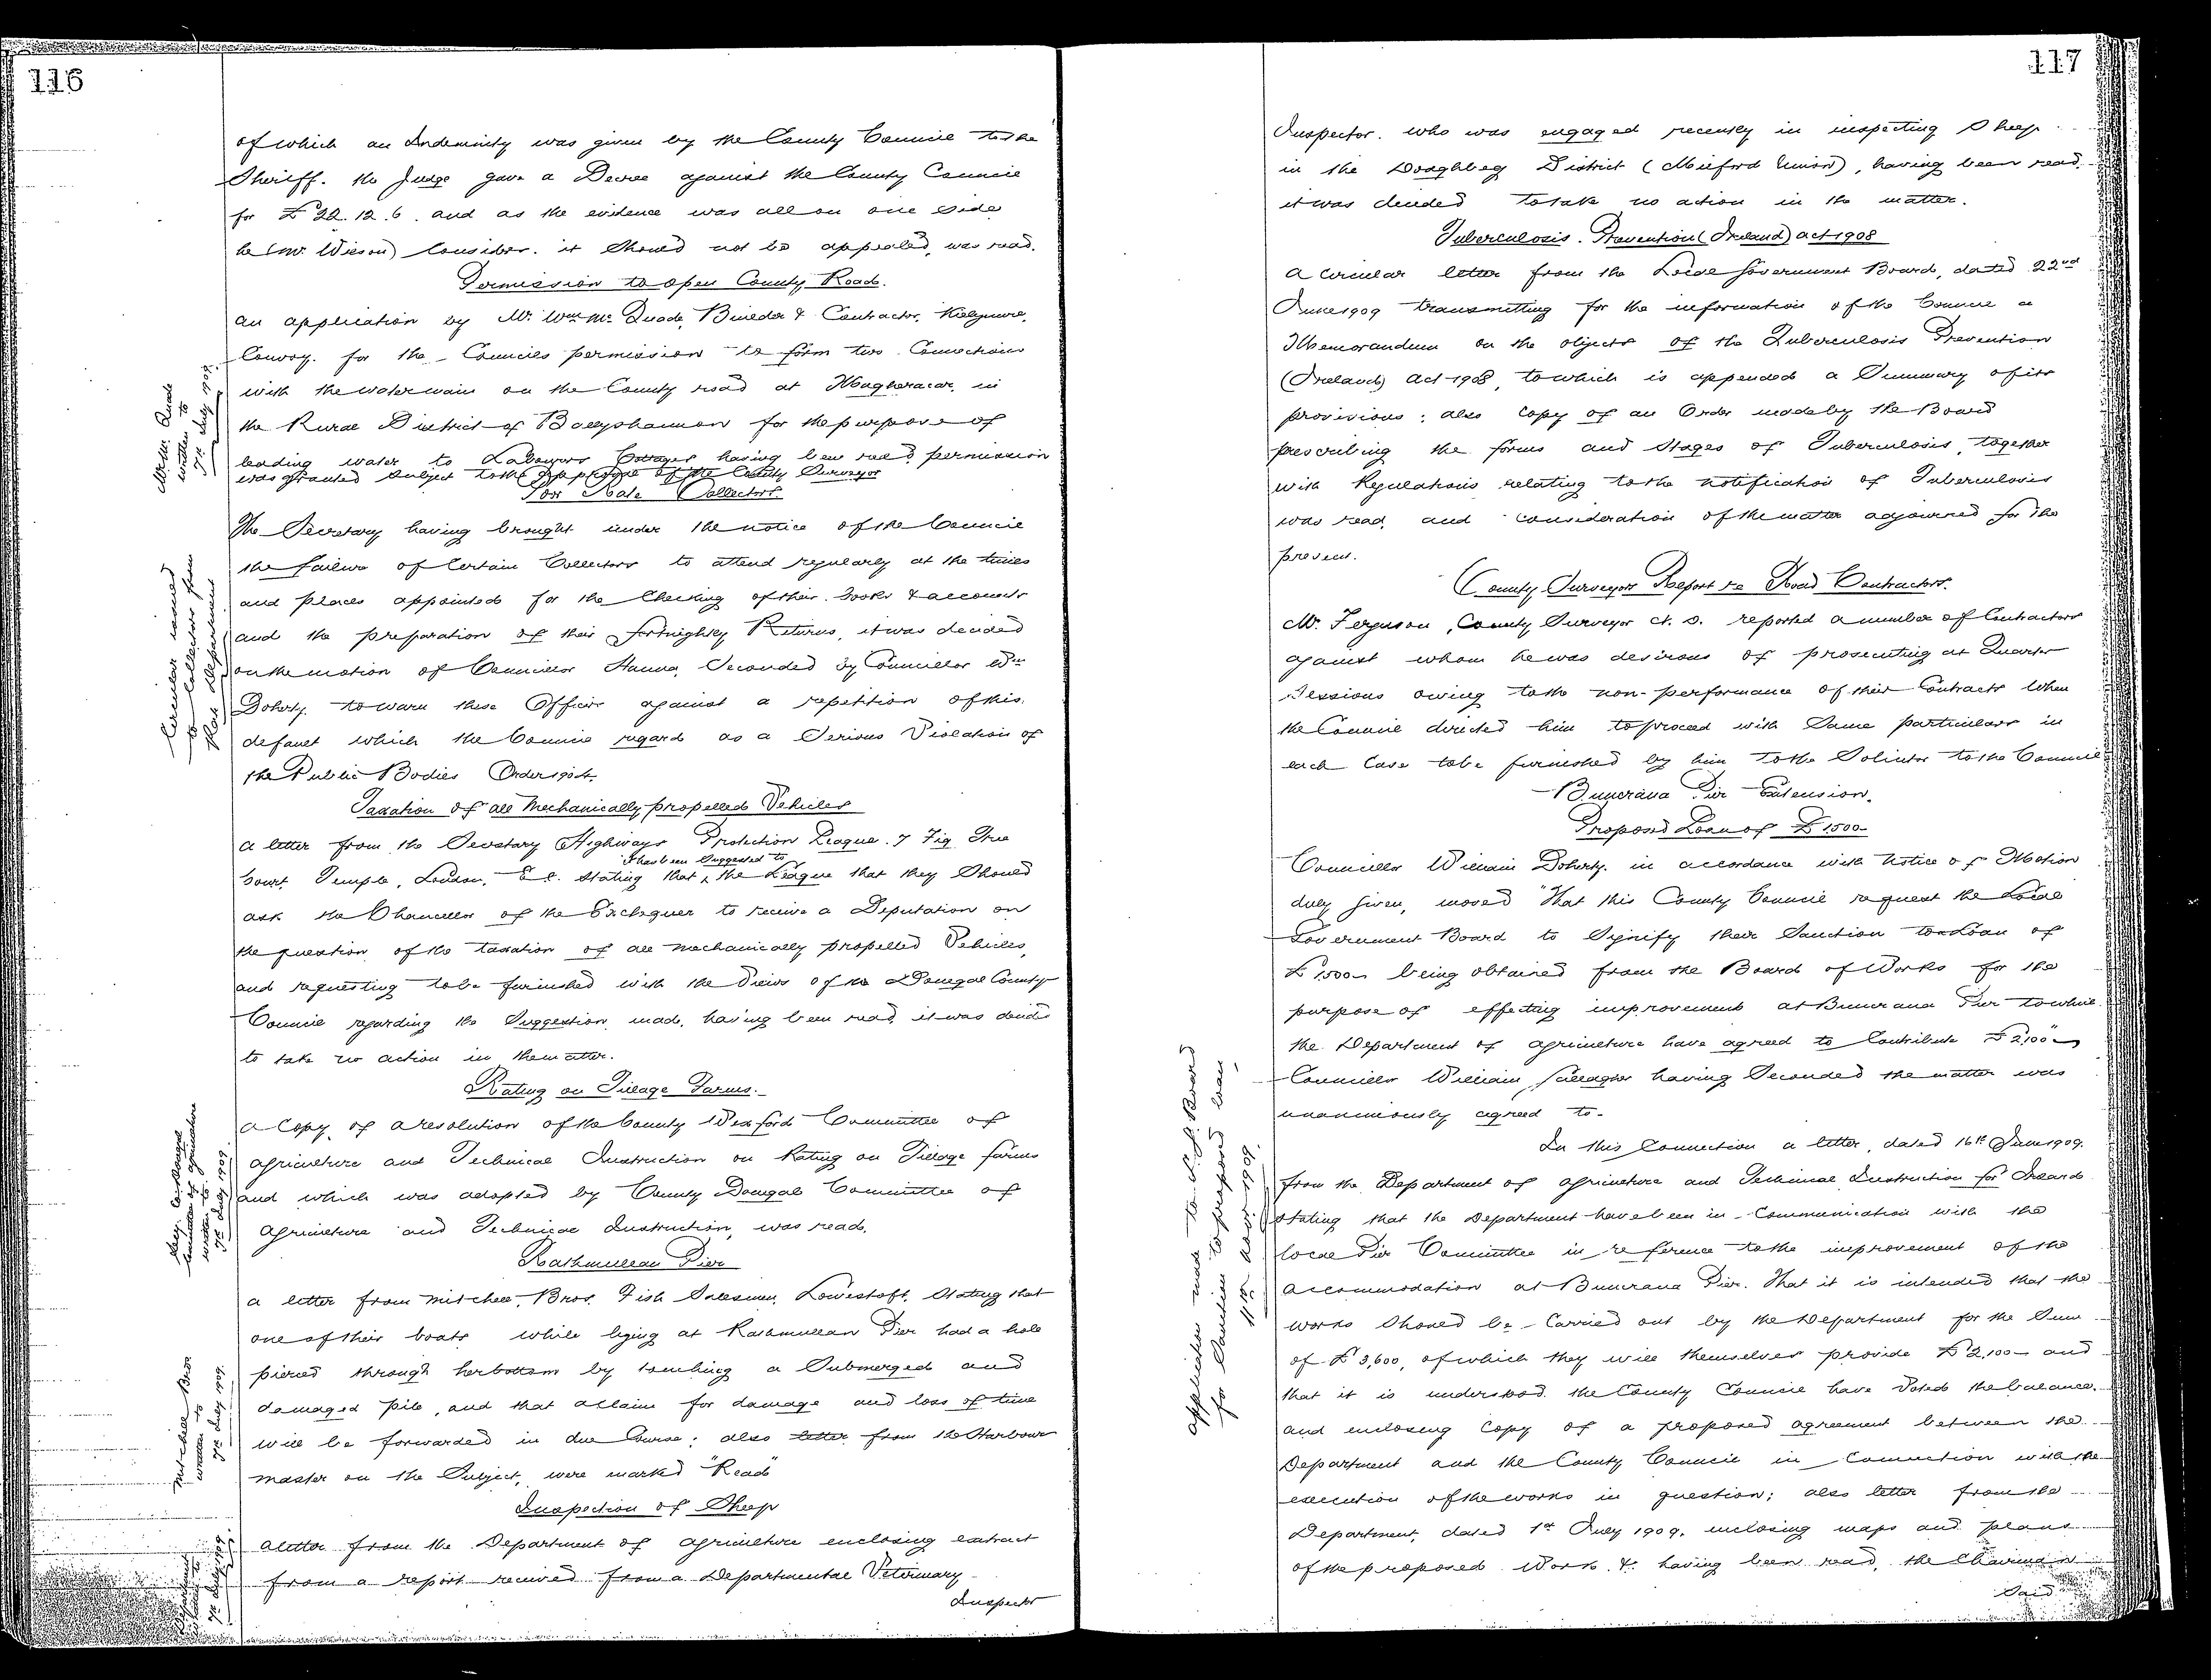 116
of which an Indemnity was given by the County Council to the
Sheriff. the Judge gave a Decree against the County Council
for £22.12.6. and as the evidence was all on one side
he (Mr. Wilson) Consider. it Should not be appealed, was read.
Permission to open County Roads.
an application by Mr. Wm Mc Quade, Builder & Contractor,
Convoy. for the Councils permission to form two Connections
with the watermain on the County road at Magheracar, in
the Rural District of Ballyshannon for the purpose of
leading water to Labourers Cottages having been read, permission
was granted subject to the approval of the County Surveyor
Poor Rate Collectors
The Secretary having brought under the notice of the Council
the failure of Certain Collectors to attend regularly at the times
and places appointed for the Checking of their books & accounts
and the preparation of their fortnightly Returns, it was decided
on the motion of Councillor Hanna, Seconded by Councillor Wm
Doherty. to warn these Officers against a repetition of this
default which the Council regard as a Serious Violation of
the Public Bodies Order 1904.
Taxation of all Mechanically propelled Vehicles
a letter from the Secretary Highways Protection League. 7 Fig Tree
it has been Suggested to
Court, Temple, London, E.C. stating that the League that they Should
ask the Chancellor of the Exchequer to receive a Deputation on
the question of the taxation of all mechanically propelled Vehicles,
and requesting to be furnished with the Views of the Donegal County
Council regarding the Suggestion made, having been read, it was decided
to take no action in the matter.
Rating on Tillage Farms.
a Copy of a resolution of the County Wexford Committee of
agriculture and Technical Instruction on Rating on Tillage farms
and which was adopted by County Donegal Committee of
agriculture and Technical Instruction, was read.
Rathmullan Pier
a letter from Mitchell, Bros. Fish Salesmen, Lowestoft, Stating that
one of their boats while lying at Rathmullan Pier had a hole
pierced through her bottom by touching a Submerged and
damaged pile, and that a claim for damage and loss of time
will be forwarded in due Course; also letter from the Harbour
master on the Subject, were marked "Read"
Inspection of Sheep
a letter from the Department of agriculture enclosing extract
from a report received from a Departmental Veterinary
Inspector
Mr Wm. Quade
written to
7th July 1909.
Circular issued
to Collectors from
Rate Department
Secy. Co. Donegal
Committee of agriculture
written to
7th July 1909.
Mitchell Bros
written to
7th July 1909.
7th July 1909.
117
Inspector. who was engaged recently in inspecting Sheep
in the Doaghbeg District (Milford Union), having been read,
it was decided to take no action in the matter.
Tuberculosis. Prevention (Ireland) act 1908
a Circular letter from the Local Government Board, dated 22nd
June 1909 transmitting for the information of the Council a
Memorandum on the objects of the Tuberculosis Prevention
(Ireland) Act 1908, to which is appended a Summary of its
provisions; also Copy of an Order made by the Board
prescribing the forms and Stages of Tuberculosis, together
with Regulations relating to the notification of Tuberculosis
was read, and consideration of the matter adjourned for the
present.
County Surveyors Report re Road Contractors.
Mr. Ferguson, County Surveyor reported a number of Contractors
against whom he was desirous of prosecuting at Quarter
Sessions owing to the non-performance of their Contracts When
the Council directed him to proceed with Same particulars in
each Case to be furnished by him to the Solicitor to the Council
Buncrana Pier Extension.
Proposed Loan of £1500
Councillor William Doherty. in accordance with Notice of Motion
duly given, moved "That this County Council request the Local
Government Board to Signify their Sanction to a Loan of
£1,500 being obtained from the Board of Works for the
purpose of effecting improvement at Buncrana Pier towhic
the Department of agriculture have agreed to Contribute £2,100"
Councillor William Gallagher having Seconded the matter was
unanimously agreed to.
In this Connection a letter, dated 16th June 1909.
from the Department of agriculture and Technical Instruction for Ireland
stating that the Department have been in Communication with the
local Pier Committee in reference to the improvement of the
accommodation at Buncrana Pier. That it is intended that the
works Should be Carried out by the Department for the Sum
of £3,600, of which they will themselves provide £2,100 and
that it is understood the County Council have Voted the balance.
and enclosing Copy of a proposed agreement between the
Department and the County Council in Connection with the
execution of the works in question; also letter from the
Department, dated 1st July 1909. enclosing maps and plans
of the proposed Work. &. having been read, the Chairman
Said
application made to L. G. Board
for Sanction to proposed loan,
1909.